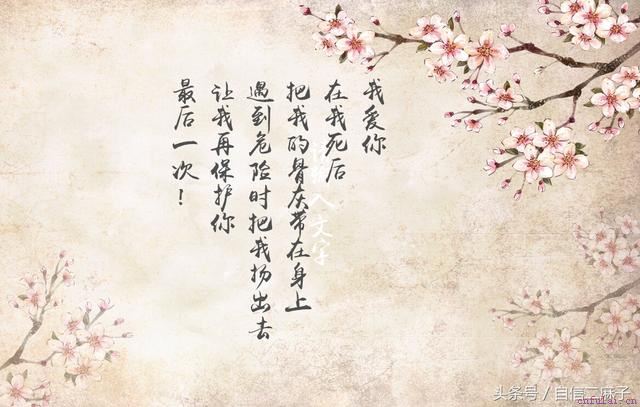 我爱你
在我死后
把我的骨灰带在身上
遇到危险时把我扬出去
让我再保护你
最后一次！
请输入文字
头条号／自信二麻子
chfulai.cn